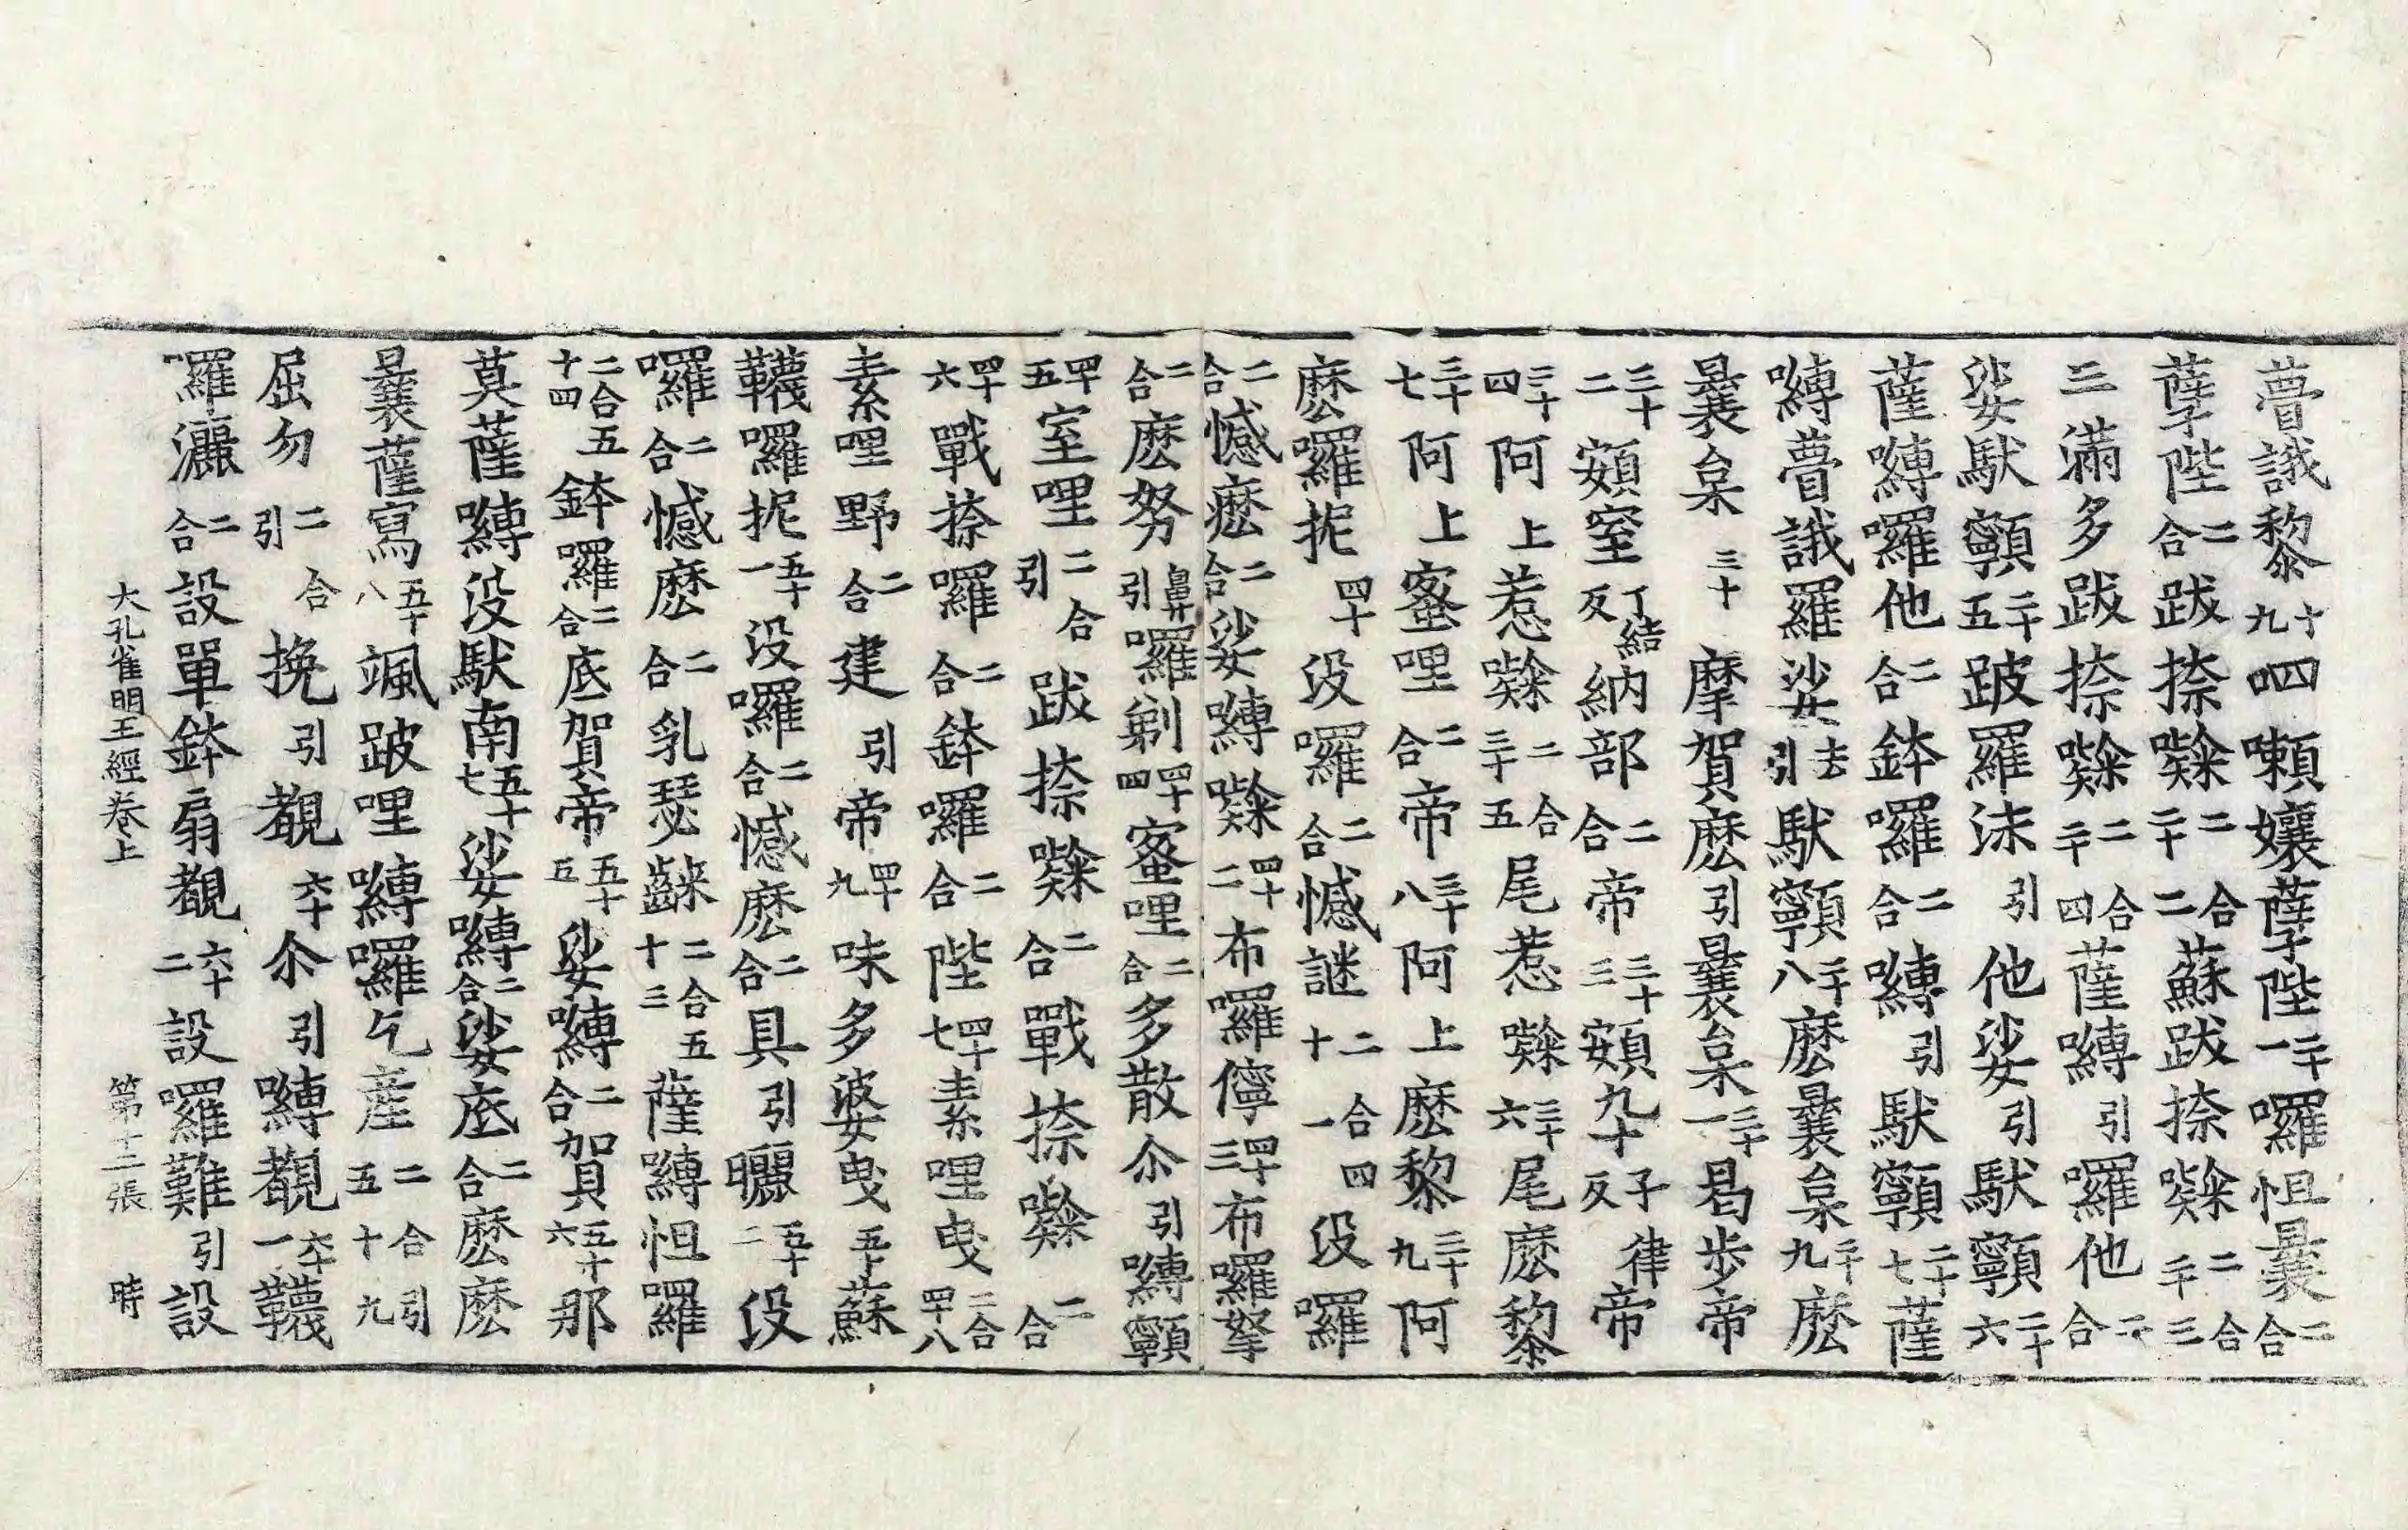 瞢誐黎十九呬嚩孃孽陛二十一囉怛曩二合
孽陛二合跋捺㘑二合二十二蘇跋捺㘑二合二十三
三滿多跋捺㘑二合二十四薩嚩引囉他二合
娑馱顊二十五跛羅沫引他娑引馱顊二十六
薩嚩囉他二合鉢囉二合嚩引馱顊二十七薩
嚩瞢誐羅娑去引馱顊二十八麽曩枲二十九麽
曩枲三十摩賀麽引曩枲三十一曷步帝
三十二頞窒丁結反納部二合帝三十三頞九十子律反帝
三十四阿上惹㘑二合三十五尾惹㘑三十六尾麽黎
三十七阿上蜜哩二合帝三十八阿上麽黎三十九阿
麽囉抳四十没囉二合憾謎二合四十一没囉
二合憾麽二合娑嚩㘑四十二布囉儜四十三布囉拏
二合麽努鼻引囉剃四十四蜜哩二合多散尒引嚩顊
四十五室哩二合引跋捺㘑二合戰捺㘑二合
四十六戰捺囉二合鉢囉二合陛四十七素哩曳二合四十八
素哩野二合建引帝四十九味多婆曳五十蘇
韈囉抳五十一没囉二合憾麽二合具引曬五十二没
囉二合憾麽二合乳瑟𪘨二合五十三薩嚩怛囉
二合五十四鉢囉二合底賀帝五十五娑嚩二合加具五十六那
莫薩嚩没馱南五十七娑嚩二合娑底二合麽麽
曩薩寫五十八颯跛哩嚩囉乞産二合引五十九
屈勿二合引挽引覩六十尒引嚩覩六十一韈
囉灑二合設單鉢扇覩六十二設囉難引設
大孔雀明王經卷上　第十二張　時